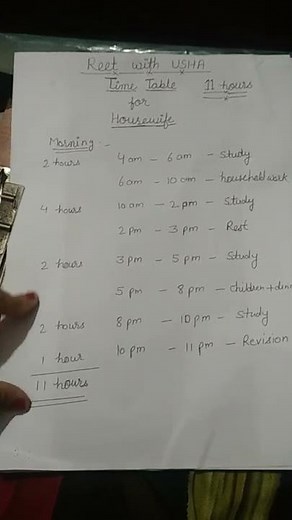 Reet with USHA
Time Table 11 hours
for
Housewife
Morning -
2 hours 4 am - 6 am - Study
6 am - 10 am - household work
4 hours 10 am - 2 pm - Study
2 pm - 3 pm - Rest
2 hours 3 pm - 5 pm - Study
5 pm - 8 pm - children + dinn
2 hours 8 pm - 10 pm - Study
1 hour 10 pm - 11 pm - Revision
11 hours